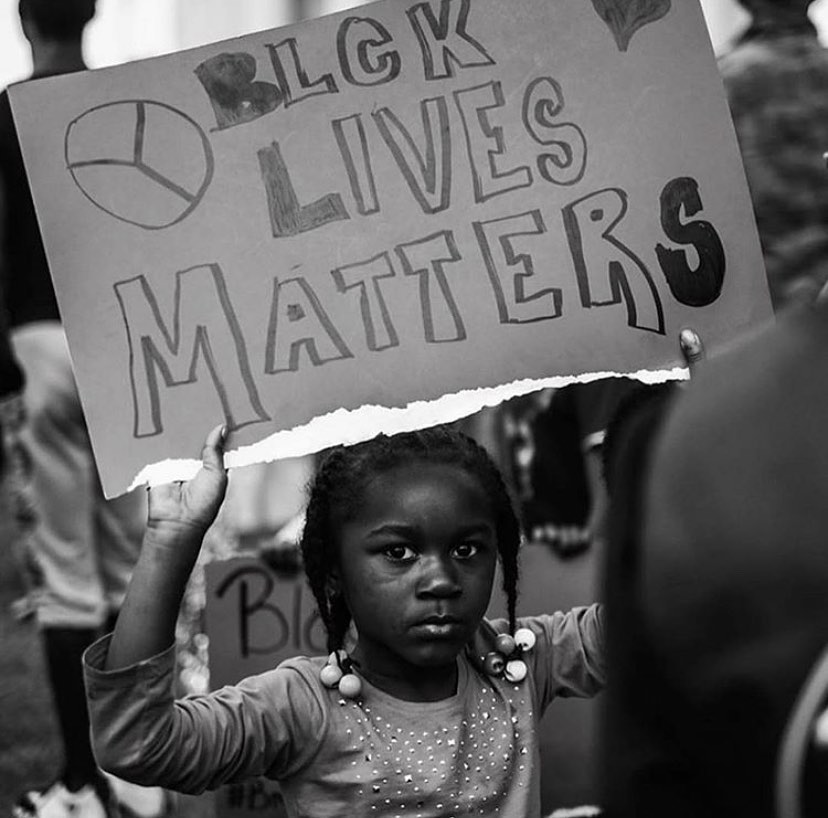 BLCK
LIVES
MATTERS
Bl